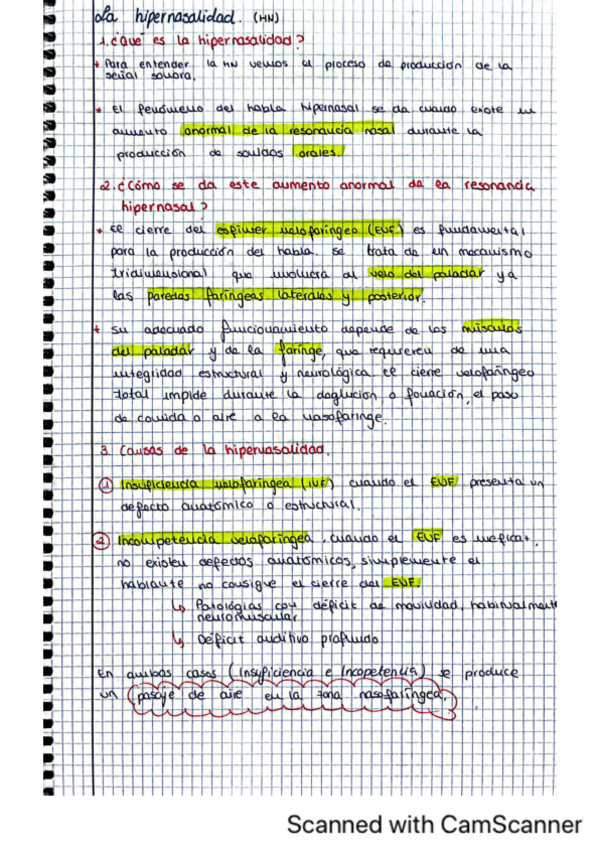 La hipernasalidad. (HN)
1. ¿Qué es la hipernasalidad?
Para entender la HN vemos el proceso de producción de la
señal sonora.
• El fenómeno del habla hipernasal se da cuando existe un
aumento anormal de la resonancia nasal durante la
producción de sonidos orales.
2. ¿Cómo se da este aumento anormal de la resonancia
hipernasal?
• El cierre del esfínter velofaríngeo (EVF) es fundamental
para la producción del habla. Se trata de un mecanismo
tridimensional que involucra al velo del paladar ya
las paredes faríngeas laterales y posterior.
Su adecuado funcionamiento depende de los músculos
del paladar y de la faringe, que requieren de una
integridad estructural y neurológica. El cierre velofaríngeo
total impide durante la deglución o fonación, el paso
de comida o aire a la nasofaringe.
3. Causas de la hipernasalidad.
① Insuficiencia velofaríngea (IVF) cuando el EVF presenta un
defecto anatómico o estructural.
② Incompetencia velofaríngea, cuando el EVF es ineficat,
no existen defectos anatómicos, simplemente el
hablante no consigue el cierre del EVF.
↳ Patologías con déficit de movilidad, habitualmente
neuromuscular
↳ Déficit auditivo profundo
En ambos casos (Insuficiencia e Incopetencia) se produce
un pasaje de aire en la zona nasofaríngea.
Scanned with CamScanner